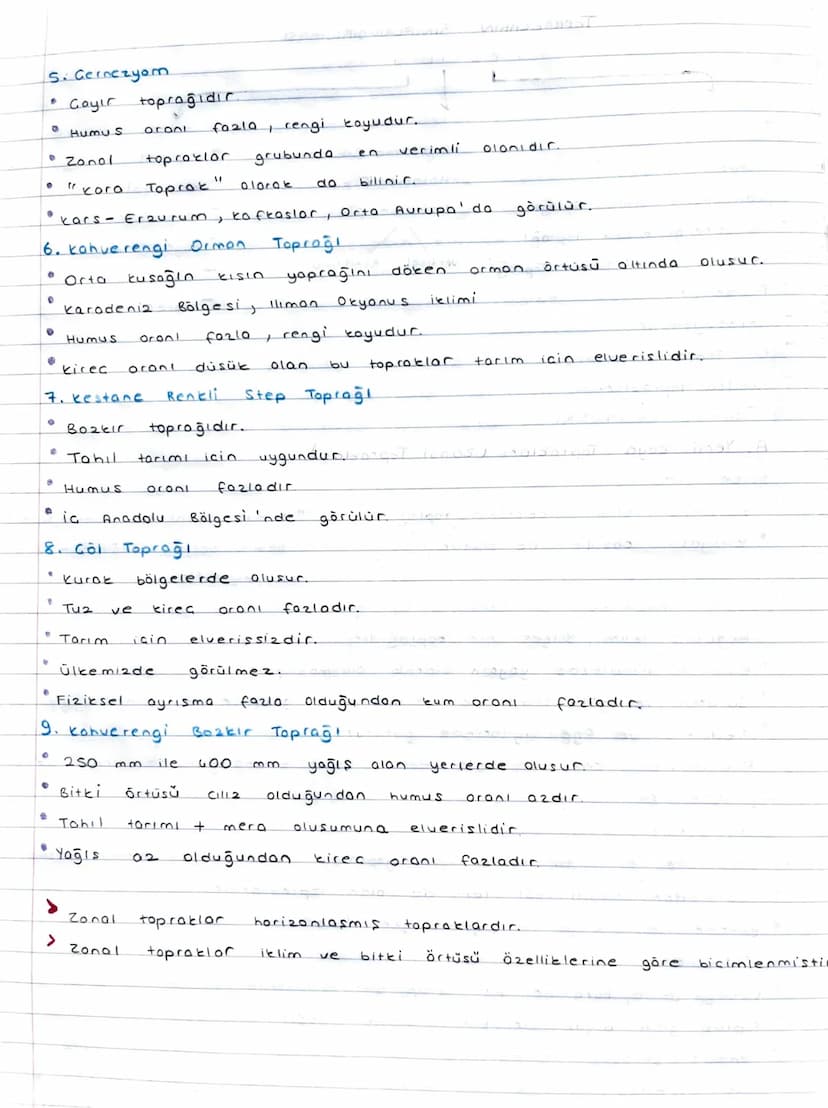 5. Çernezyom
• Çayır toprağıdır.
• Humus oranı fazla, rengi koyudur.
• Zonal topraklar grubunda en verimli olanıdır.
• "Kara Toprak" olarak da bilinir.
• Kars - Erzurum, Kafkaslar, Orta Avrupa'da görülür.
6. Kahverengi Orman Toprağı
• Orta kuşağın kışın yaprağını döken orman örtüsü altında oluşur.
• Karadeniz Bölgesi, Ilıman Okyanus iklimi
• Humus oranı fazla, rengi koyudur.
• Kireç oranı düşük olan bu topraklar tarım için elverişlidir.
7. Kestane Renkli Step Toprağı
• Bozkır toprağıdır.
• Tahıl tarımı için uygundur.
• Humus oranı fazladır
• İç Anadolu Bölgesi'nde görülür.
8. Çöl Toprağı
• Kurak bölgelerde oluşur.
• Tuz ve kireç oranı fazladır.
• Tarım için elverişsizdir.
• Ülkemizde görülmez.
• Fiziksel ayrışma fazla olduğundan kum oranı fazladır.
9. Kahverengi Bozkır Toprağı
• 250 mm ile 400 mm yağış alan yerlerde oluşur.
• Bitki örtüsü cılız olduğundan humus oranı azdır.
• Tahıl tarımı + mera oluşumuna elverişlidir.
• Yağış az olduğundan kireç oranı fazladır.
> Zonal topraklar horizonlaşmış topraklardır.
> Zonal topraklar iklim ve bitki örtüsü özelliklerine göre biçimlenmiştir